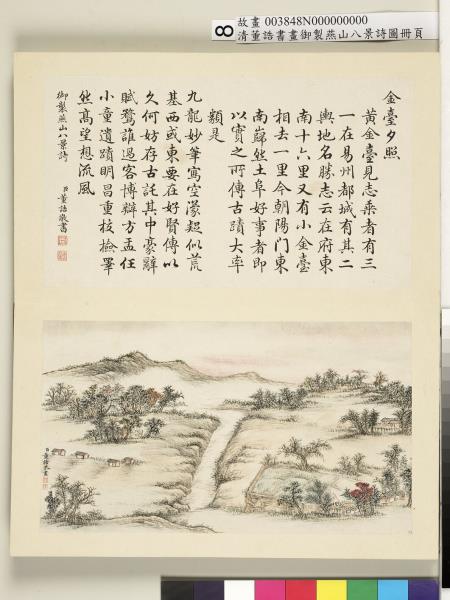 故畫 003848N000000000
清董誥書畫御製燕山八景詩圖冊頁
8
金臺夕照
黃金臺見志乘者有三
一在易州都城有其二
輿地名勝志云在府東
南十六里又有小金臺
相去一里今朝陽門東
南巋然土阜好事者即
以實之所傳古蹟大率
類是
九龍妙筆寫空濛疑似荒
基西或東要在好賢傳以
久何妨存古託其中豪辭
賦鶩誰過客博辯方盂任
小童遺蹟明昌重校檢睪
然高望想流風
御製燕山八景詩
臣董誥敬書
臣董誥恭畫